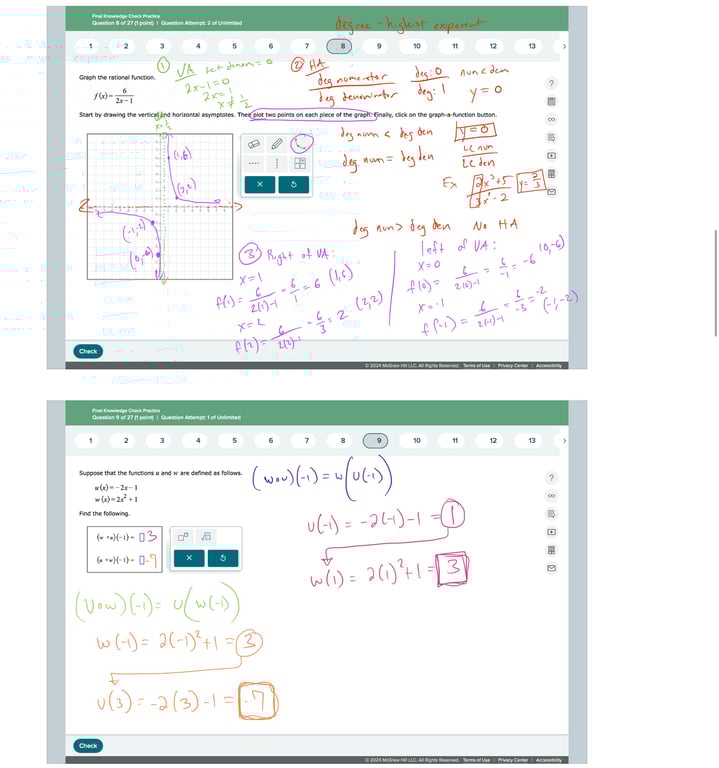 Final Knowledge Check Practice
Question 8 of 27 (1 point) | Question Attempt: 2 of Unlimited
degree - highest exponent
1 2 3 4 5 6 7 8 9 10 11 12 13
① VA set denom = 0
2x-1=0
2x=1
x≠1/2
② HA
deg numerator deg: 0 num < den
deg denominator deg: 1 y=0
Graph the rational function.
f(x)= 6/(2x-1)
Start by drawing the vertical and horizontal asymptotes. Then plot two points on each piece of the graph. Finally, click on the graph-a-function button.
(1,6)
(2,2)
(-1,-2)
(0,-6)
deg num < deg den y=0
deg num = deg den LC num / LC den
Ex 2x³+5 / 3x³-2 y=2/3
deg num > deg den No HA
③ Right of VA:
x=1
f(1)= 6/(2(1)-1) = 6/1 = 6 (1,6)
x=2
f(2)= 6/(2(2)-1) = 6/3 = 2 (2,2)
left of VA:
x=0
f(0)= 6/(2(0)-1) = 6/-1 = -6 (0,-6)
x=-1
f(-1)= 6/(2(-1)-1) = 6/-3 = -2 (-1,-2)
Check
© 2024 McGraw Hill LLC. All Rights Reserved. Terms of Use | Privacy Center | Accessibility
Final Knowledge Check Practice
Question 9 of 27 (1 point) | Question Attempt: 1 of Unlimited
1 2 3 4 5 6 7 8 9 10 11 12 13
Suppose that the functions u and w are defined as follows.
u(x)=-2x-1
w(x)=2x²+1
Find the following.
(w∘u)(-1)= 3
(u∘w)(-1)= -7
(w∘u)(-1) = w(u(-1))
u(-1) = -2(-1)-1 = 1
w(1) = 2(1)²+1 = 3
(u∘w)(-1) = u(w(-1))
w(-1) = 2(-1)²+1 = 3
u(3) = -2(3)-1 = -7
Check
© 2024 McGraw Hill LLC. All Rights Reserved. Terms of Use | Privacy Center | Accessibility